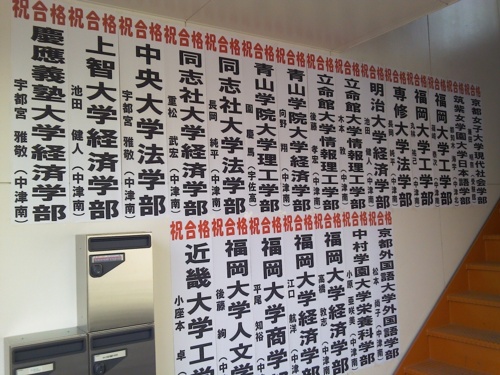 祝合格
慶應義塾大学経済学部
宇都宮 雅敬(中津南)
祝合格
上智大学経済学部
池田 健人(中津南)
祝合格
中央大学法学部
宇都宮 雅敬(中津南)
祝合格
同志社大学経済学部
重松 武宏(中津南)
祝合格
同志社大学法学部
長岡 純平(中津南)
祝合格
青山学院大学理工学部
祝合格
青山学院大学経済学部
向野 翔(中津南)
祝合格
立命館大学情報理工学部
後藤 孝宏(中津南)
祝合格
立命館大学情報理工学部
祝合格
明治大学経済学部
池田 健人(中津南)
祝合格
専修大学法学部
祝合格
福岡大学工学部
祝合格
福岡大学工学部
祝合格
筑紫女学園大学日本語学部
祝合格
京都女子大学現代社会学部
祝合格
近畿大学工学
小座本 卓
祝合格
福岡大学人文学
後藤 絢(中
祝合格
福岡大学商学部
平尾 知裕
祝合格
福岡大学経済学部
江口 航洋(中
祝合格
福岡大学経済学部
高橋 敦志(中津
祝合格
中村学園大学栄養科学部
小原 亜咲美(中津南)
祝合格
京都外国語大学外国語学部
松本 絹子(中津南)